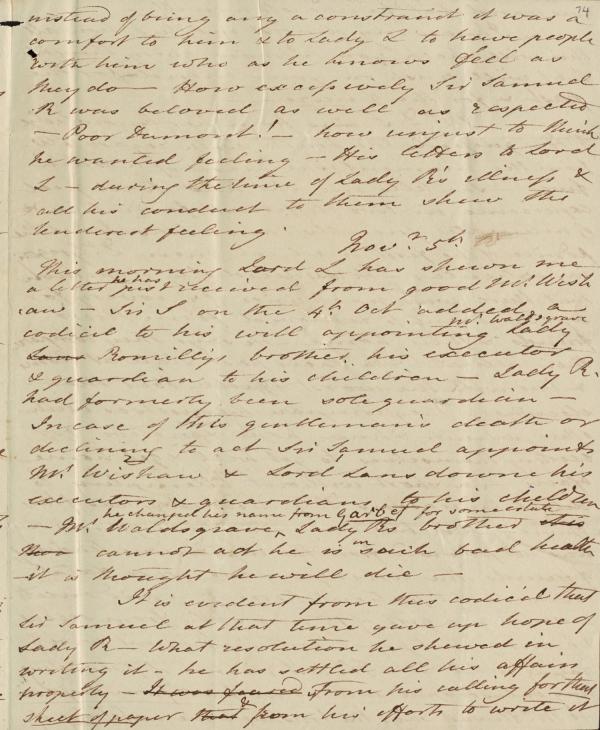 74
instead of being any a constraint it was a
comfort to him & to Lady L to have people
with him who as he knows feel as
they do – How excessively Sir Samuel
R was beloved as well as respected
– Poor Dumont! – how unjust to think
he wanted feeling – His letters to Lord
L – during the time of Lady R's illness &
all his conduct to them shew the
tenderest feeling.
Novr 5th
This morning Lord L has shewn me
a letter he has just received from good Mr. Wish
aw – Sir S on the 4th Oct added a
codical to his will appointing Mr. Waldsgrave Lady
Lans Romilly's brother his executor
& guardian to his children – Lady R.
had formerly been sole guardian –
In case of this gentleman's death or
declining to act Sir Samuel appoints
Mr. Wishaw & Lord Lansdowne his
executors & guardians to his children
– Mr. Waldsgrave, he changed his name from Garbet for some estate Lady Rs brother this
cannot act he is in such bad health
it is thought he will die –
It is evident from this codical that
Sir Samuel at that time gave up hope of
Lady R – What resolution he shewed in
writing it – he has settled all his affairs
properly – It was feared from his calling for then
sheet of paper that & from his efforts to write it